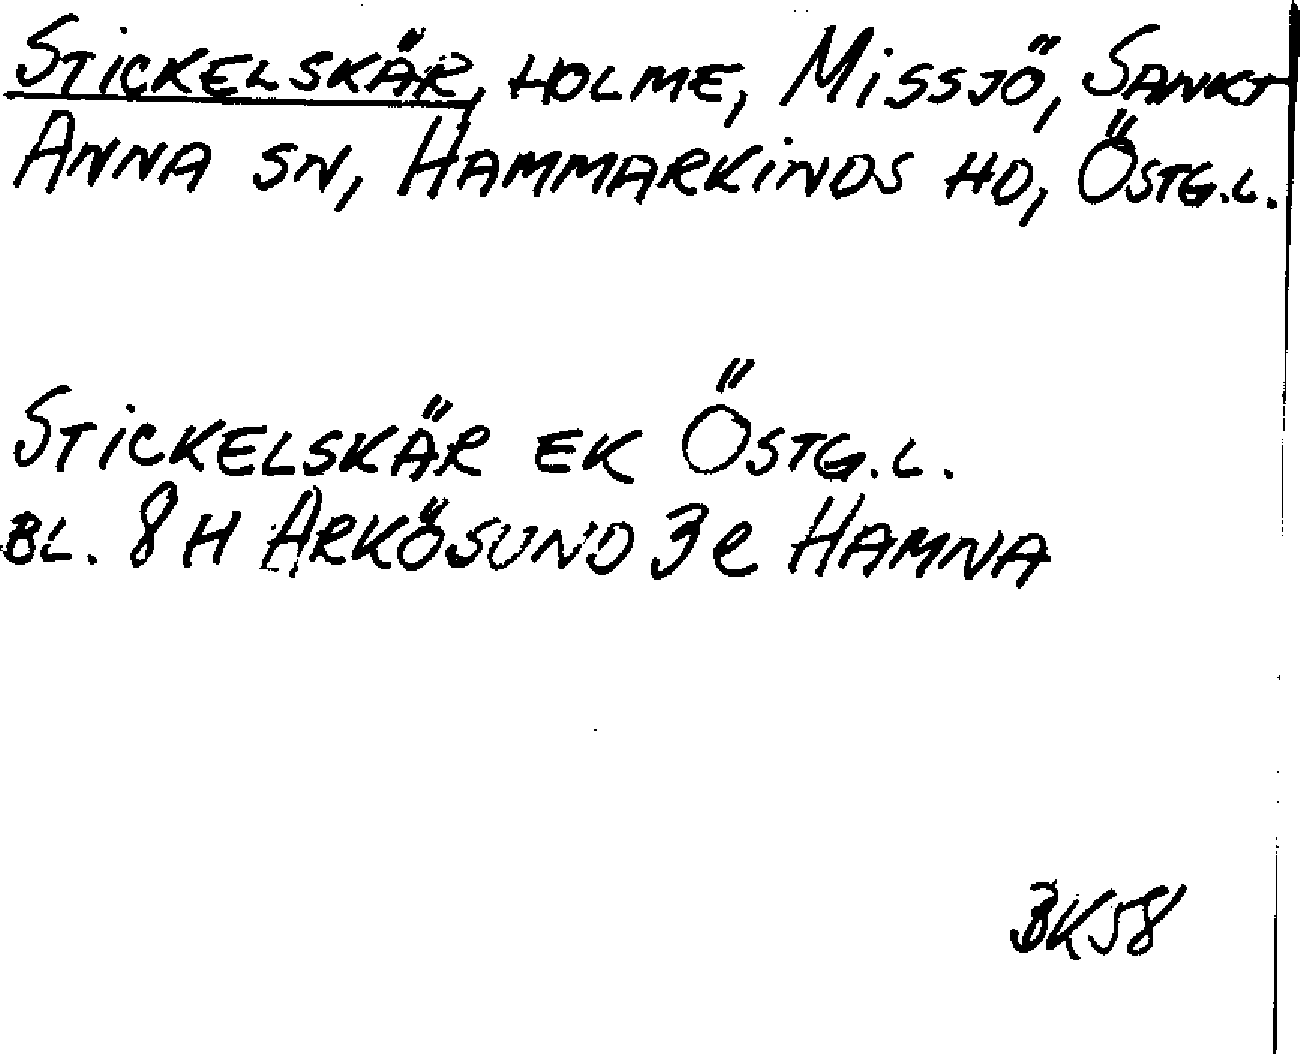 STICKELSKÄR, HOLME, MISSJÖ, SANKT
ANNA SN, HAMMARKINDS HD, ÖSTG.L.
STICKELSKÄR EK ÖSTG.L.
BL. 8 H ARKÖSUND 3 e HAMNA
BK58